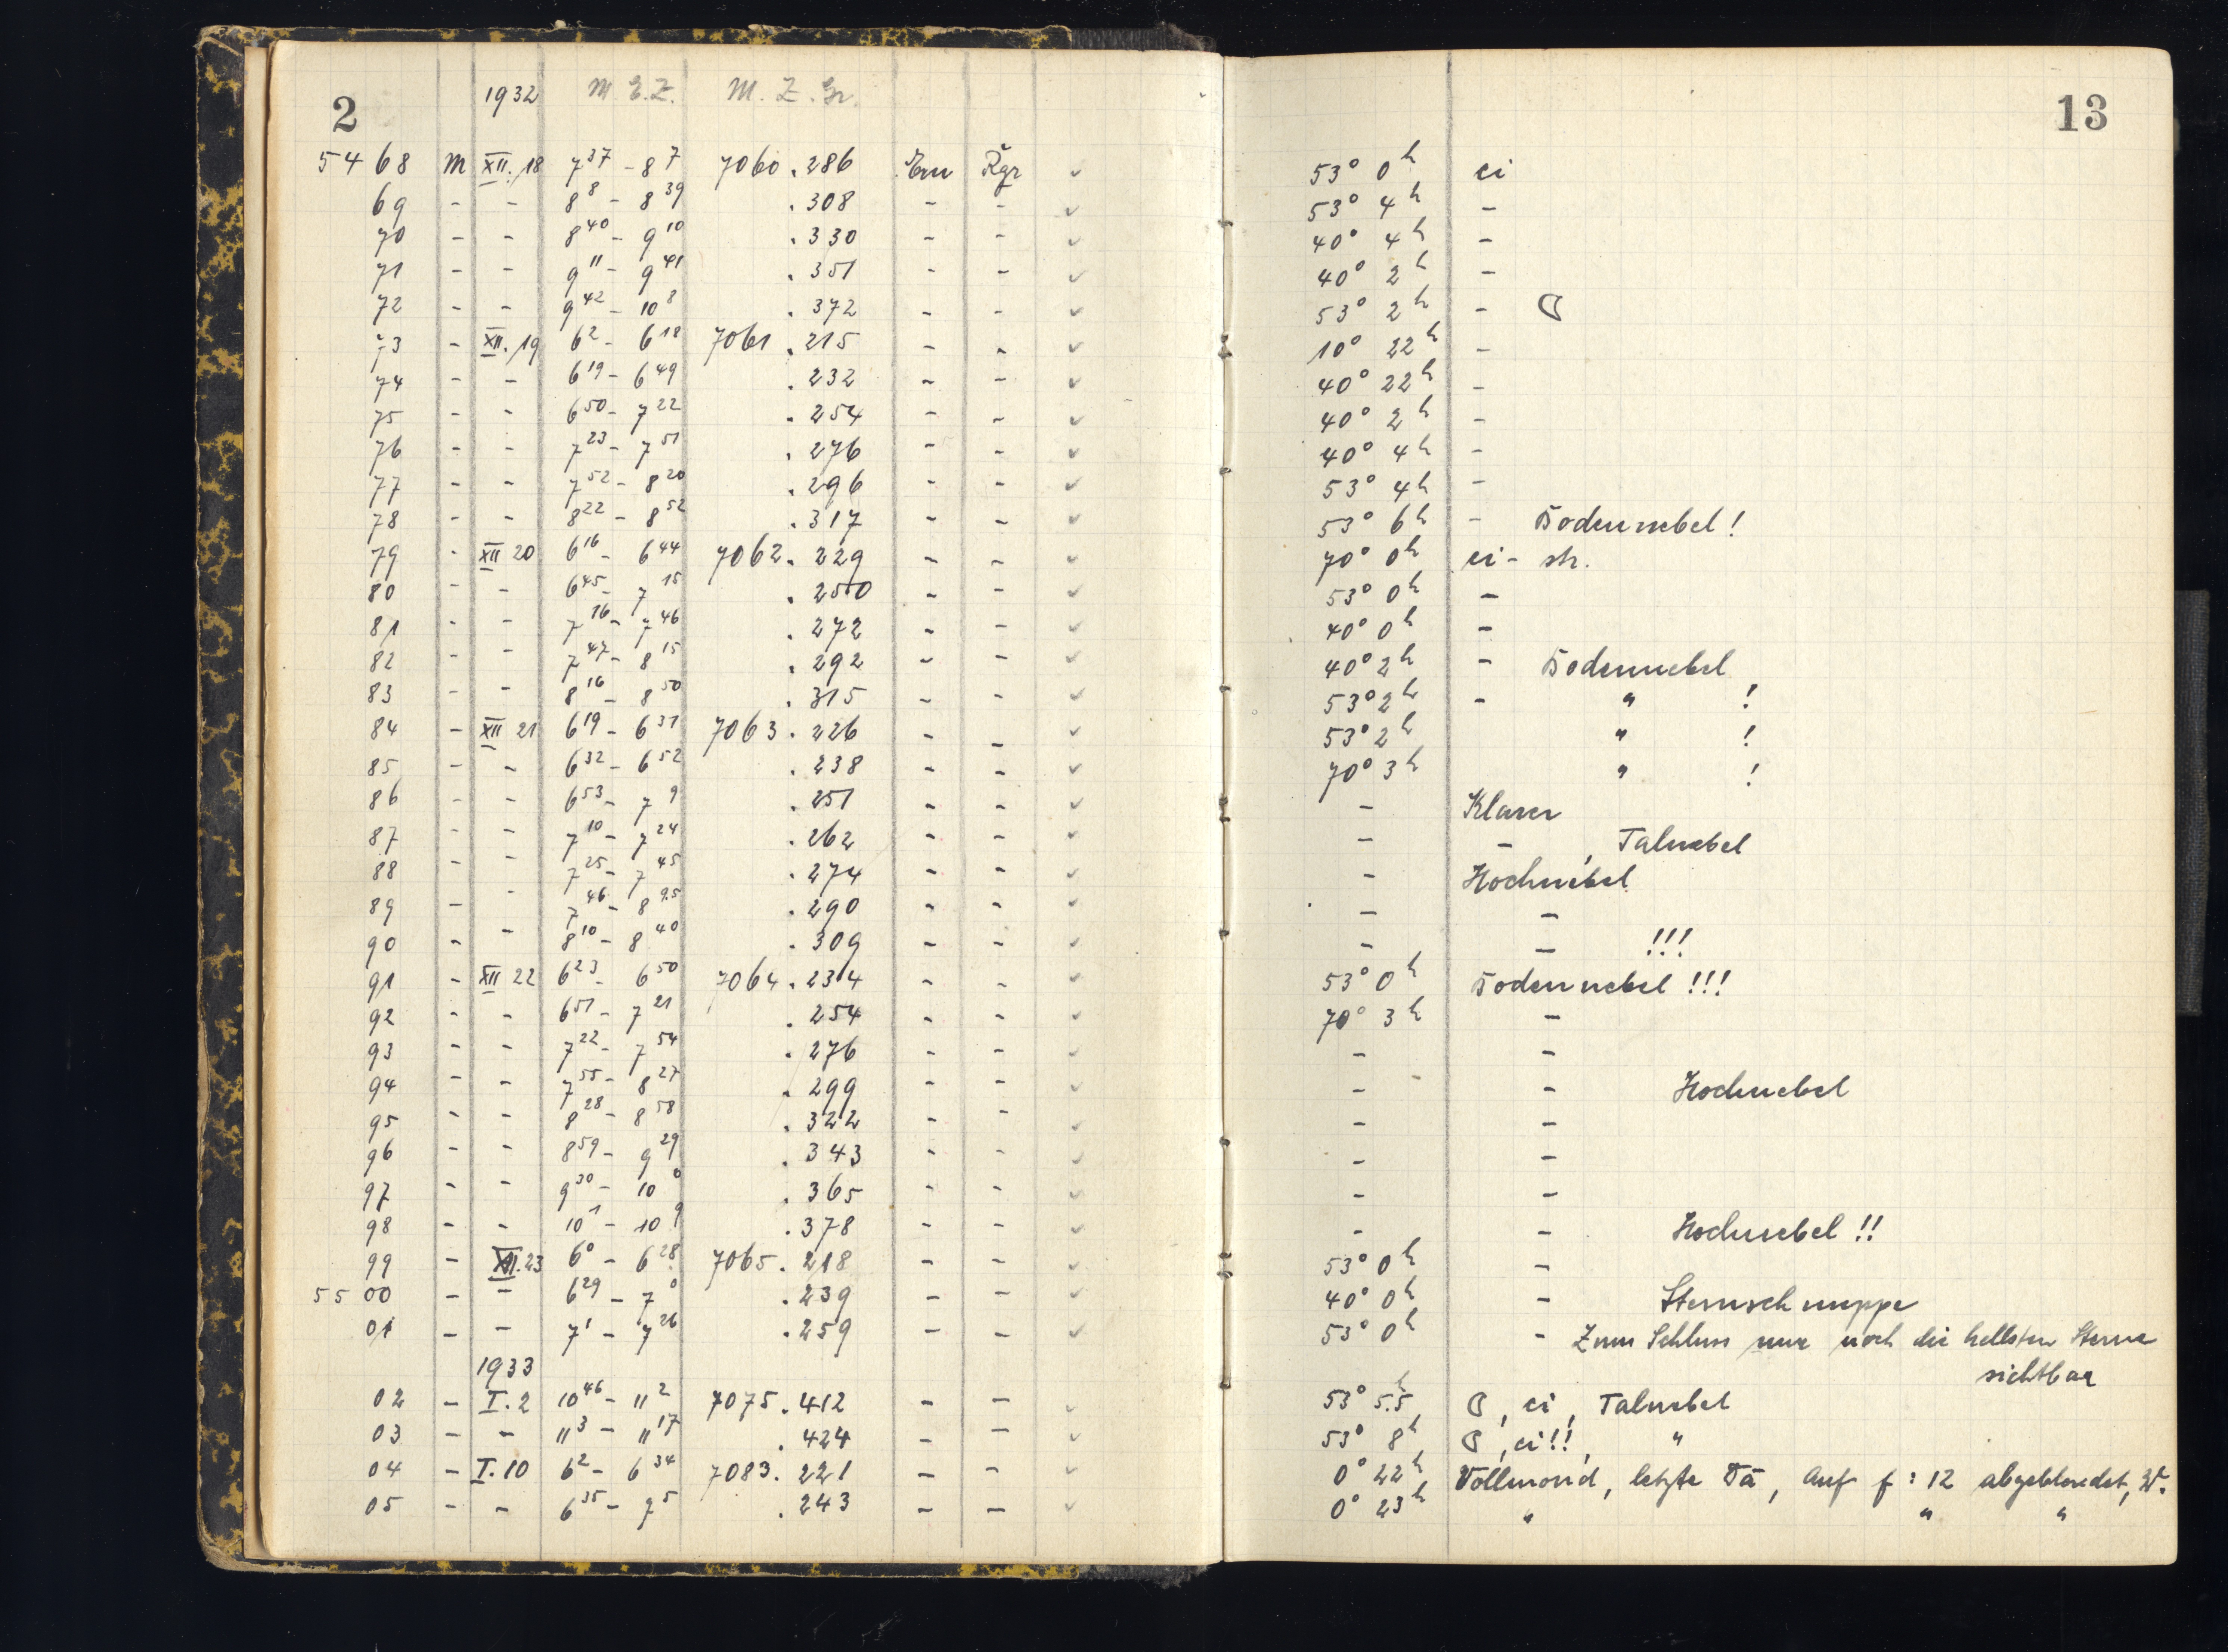 2 1932 M.E.Z. M.Z.Gr. 13
5468 M XII.18 7³⁷ - 8⁷ 7060.286 Em Rgr ✓ 53° 0ʰ ci
69 - - 8⁸ - 8³⁹ .308 - - ✓ 53° 4ʰ -
70 - - 8⁴⁰ - 9¹⁰ .330 - - ✓ 40° 4ʰ -
71 - - 9¹¹ - 9⁴¹ .351 - - ✓ 40° 2ʰ -
72 - - 9⁴² - 10⁸ .372 - - ✓ 53° 2ʰ - ☾
73 - XII.19 6² - 6¹⁸ 7061.215 - - ✓ 10° 22ʰ -
74 - - 6¹⁹ - 6⁴⁹ .232 - - ✓ 40° 22ʰ -
75 - - 6⁵⁰ - 7²² .254 - - ✓ 40° 2ʰ -
76 - - 7²³ - 7⁵¹ .276 - - ✓ 40° 4ʰ -
77 - - 7⁵² - 8²⁰ .296 - - ✓ 53° 4ʰ -
78 - - 8²² - 8⁵² .317 - - ✓ 53° 6ʰ - Bodennebel!
79 - XII 20 6¹⁶ - 6⁴⁴ 7062.229 - - ✓ 70° 0ʰ ci-str.
80 - - 6⁴⁵ - 7¹⁵ .250 - - ✓ 53° 0ʰ -
81 - - 7¹⁶ - 7⁴⁶ .272 - - ✓ 40° 0ʰ -
82 - - 7⁴⁷ - 8¹⁵ .292 - - ✓ 40° 2ʰ - Bodennebel
83 - - 8¹⁶ - 8⁵⁰ .315 - - ✓ 53° 2ʰ - " !
84 - XII 21 6¹⁹ - 6³¹ 7063.226 - - ✓ 53° 2ʰ " !
85 - - 6³² - 6⁵² .238 - - ✓ 70° 3ʰ " !
86 - - 6⁵³ - 7⁹ .251 - - ✓ - Klarer
87 - - 7¹⁰ - 7²⁴ .262 - - ✓ - - , Talnebel
88 - - 7²⁵ - 7⁴⁵ .274 - - ✓ - Hochnebel
89 - - 7⁴⁶ - 8⁹·⁵ .290 - - ✓ - -
90 - - 8¹⁰ - 8⁴⁰ .309 - - ✓ - - !!!
91 - XII 22 6²³ - 6⁵⁰ 7064.234 - - ✓ 53° 0ʰ Bodennebel!!!
92 - - 6⁵¹ - 7²¹ .254 - - ✓ 70° 3ʰ -
93 - - 7²² - 7⁵⁴ .276 - - ✓ - -
94 - - 7⁵⁵ - 8²⁷ .299 - - ✓ - - Hochnebel
95 - - 8²⁸ - 8⁵⁸ .322 - - ✓ - -
96 - - 8⁵⁹ - 9²⁹ .343 - - ✓ - -
97 - - 9³⁰ - 10⁰ .365 - - ✓ - -
98 - - 10¹ - 10⁹ .378 - - ✓ - - Hochnebel!!
99 - XII.23 6⁰ - 6²⁸ 7065.218 - - ✓ 53° 0ʰ -
5500 - - 6²⁹ - 7⁰ .239 - - ✓ 40° 0ʰ - Sternschnuppe
01 - - 7¹ - 7²⁶ .259 - - ✓ 53° 0ʰ - Zum Schluss nur noch die hellsten Sterne
sichtbar
1933
02 - I.2 10⁴⁶ - 11² 7075.412 - - ✓ 53° 5.5ʰ ☾, ci, Talnebel
03 - - 11³ - 11¹⁷ .424 - - ✓ 53° 8ʰ ☾, ci!!, "
04 - I.10 6² - 6³⁴ 7083.221 - - ✓ 0° 22ʰ Vollmond, letzte Dä, auf f:12 abgeblendet, W.
05 - - 6³⁵ - 7⁵ .243 - - ✓ 0° 23ʰ " " "